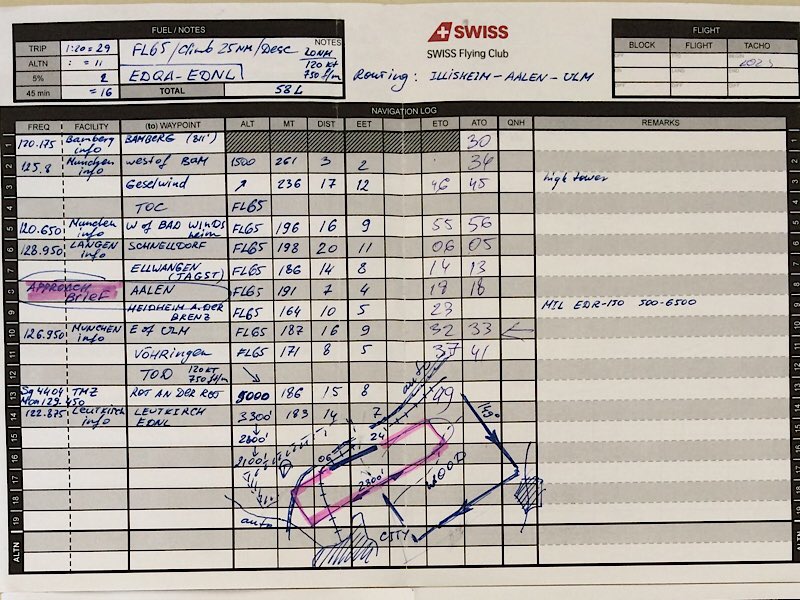 FUEL / NOTES
TRIP 1:20 = 29 FL65/Climb 25NM/Desc NOTES 20NM
120 kt
ALTN : = 11 750 f/m
5% 2 EDQA-EDNL
45 min = 16 TOTAL 58L
SWISS
SWISS Flying Club
Routing: ILLISHEIM-AALEN-ULM
FLIGHT
BLOCK FLIGHT TACHO
NAVIGATION LOG
FREQ FACILITY (to) WAYPOINT ALT MT DIST EET ETO ATO QNH REMARKS
1 120.175 Bamberg info BAMBERG (811') 30
2 125.8 Munchen info west of BAM 1500 261 3 2 36
3 Geselwind ↗ 236 17 12 46 45 high tower
4 TOC FL65
5 120.650 Munchen info W of BAD WINDSheim FL65 196 16 9 55 56
6 128.950 LANGEN info SCHNELLDORF FL65 198 20 11 06 05
7 ELLWANGEN (JAGST) FL65 186 14 8 14 13
8 APPROACH Brief AALEN FL65 191 7 4 18 18
9 HEIDHEIM A.DER BRENZ FL65 164 10 5 23 MIL EDR-130 500-6500
10 126.950 MUNCHEN info E of ULM FL65 187 16 9 32 33 ←
11 VÖHRINGEN FL65 171 8 5 37 41
12 TOD 120 KT 750 f/m
13 Sq 4404 TMZ Mon 129.450 ROT AN DER ROT 5000 186 15 8 49
14 122.875 Leutkirch info LEUTKIRCH EDNL 3300' 183 14 7
15 2800'
16 2100'
17
18
19
ALTN
auto
06
24
2800'
WOOD
auto
CITY